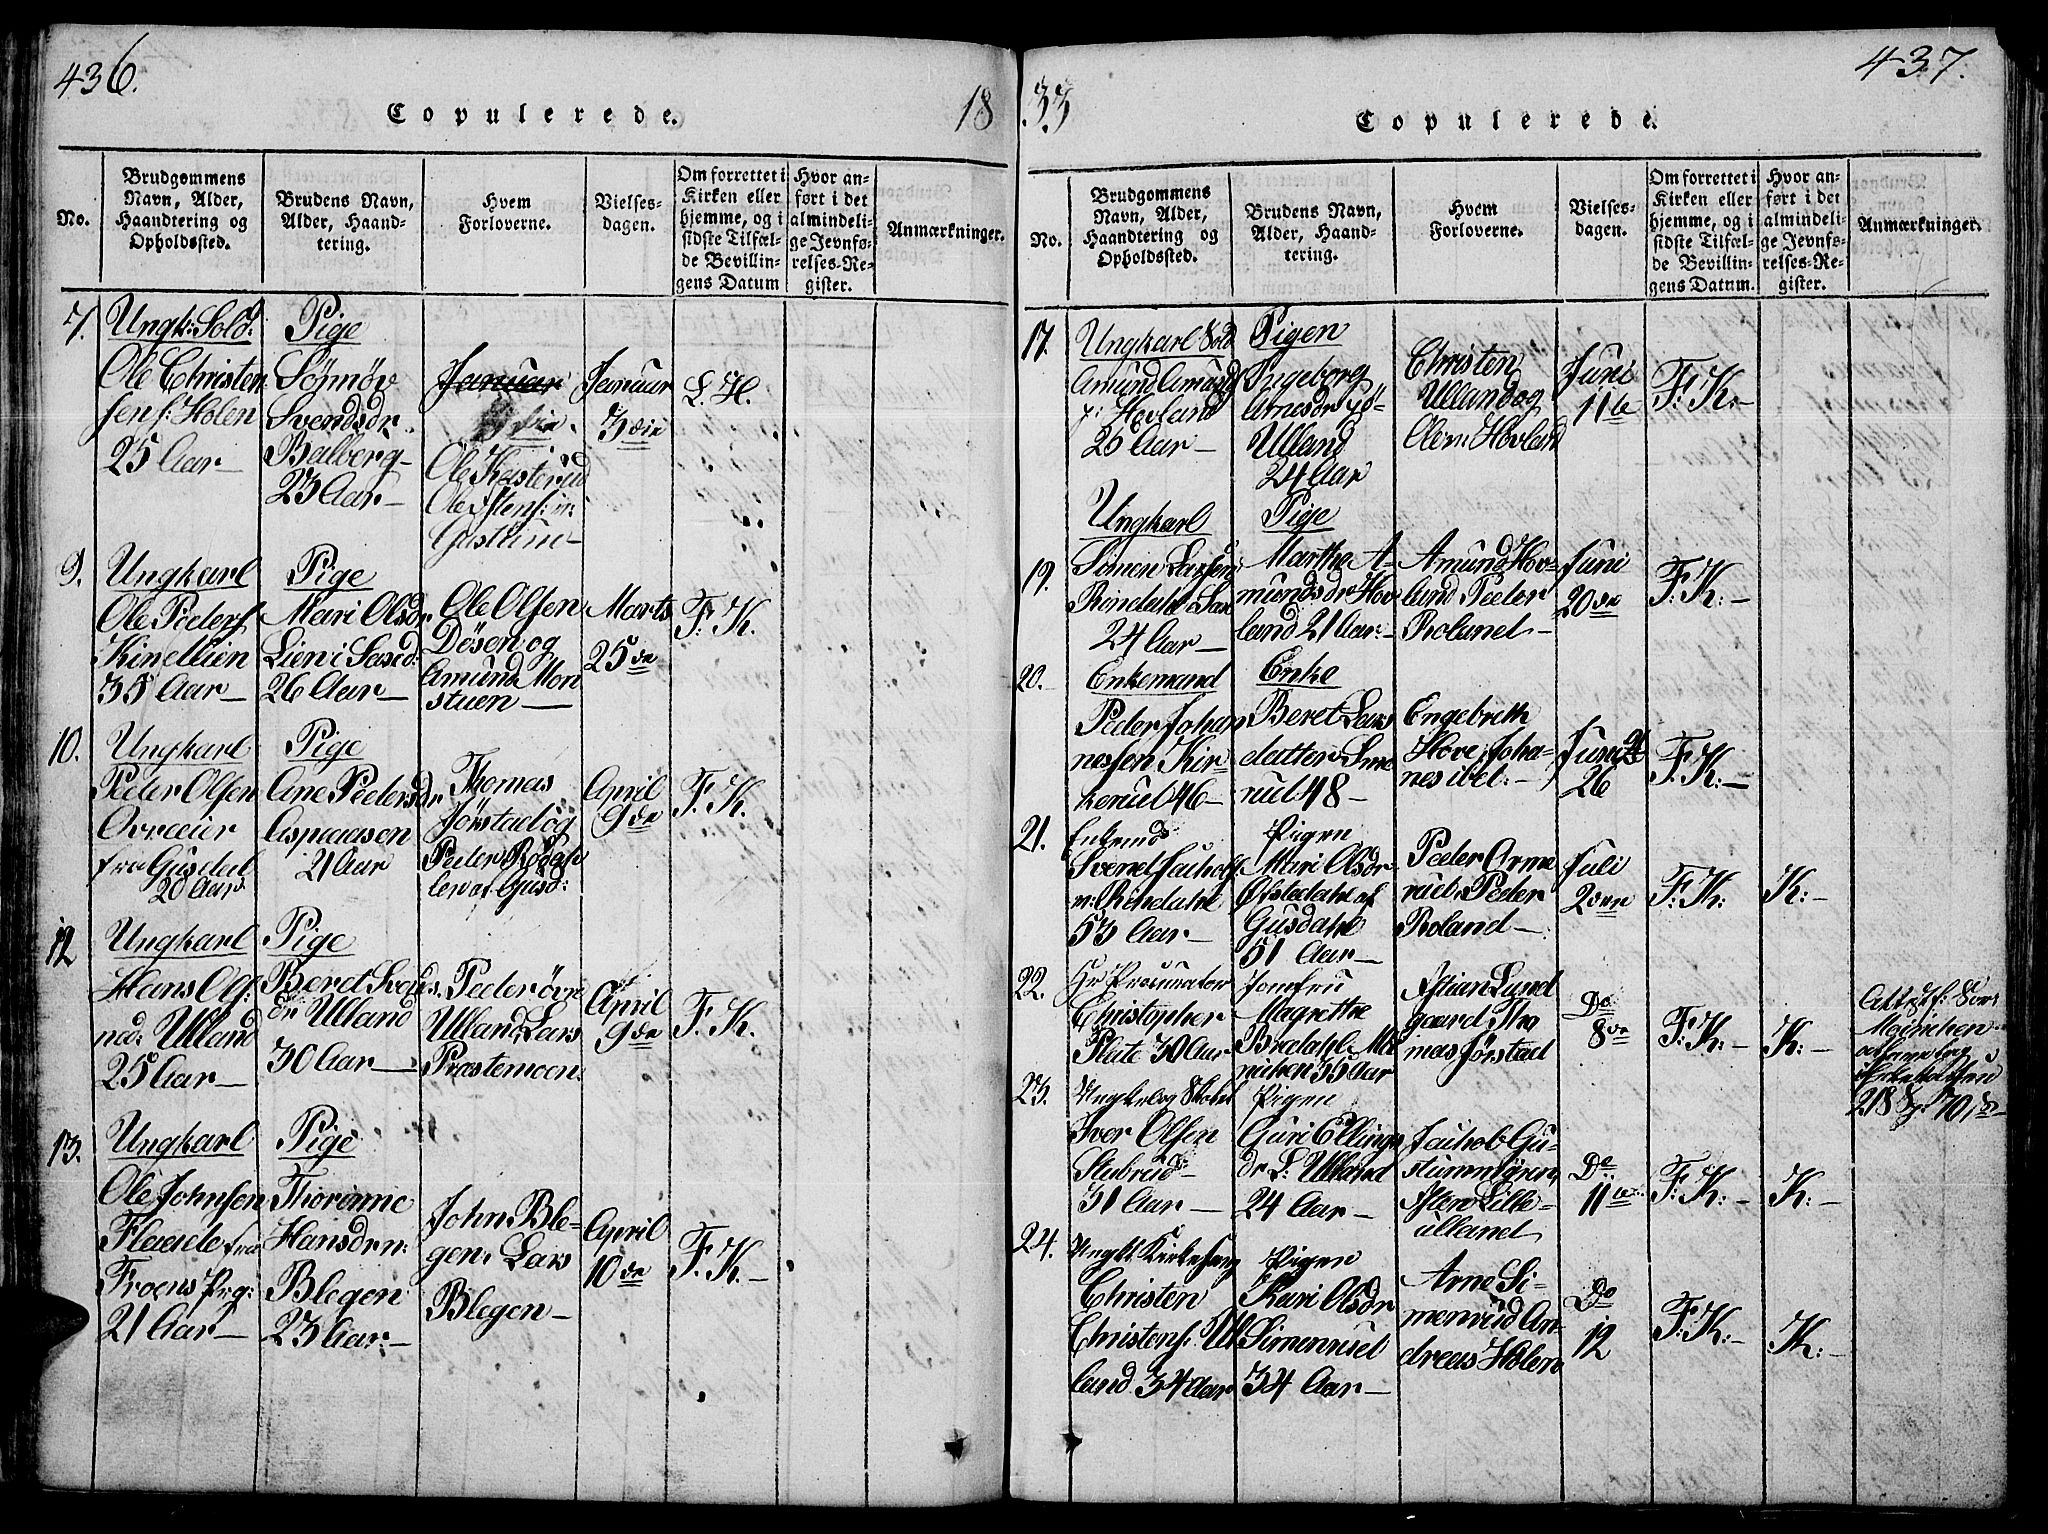 436.
Copulerede.
18
No.
Brudgommens
Navn, Alder,
Haandtering og
Opholdssted.
Brudens Navn,
Alder, Haand-
tering.
Hvem
Forloverne.
Vielses-
dagen.
Om forrettet i
Kirken eller
hjemme, og i
sidste Tilfæl-
de Bevillin-
gens Datum
Hvor an-
ført i det
almindeli-
ge Jevnfø-
relses-Re-
gister.
Anmærkninger.
7.
Ungk: Sold:
Ole Christen
sen f: Holen
25 Aar
Pige
Svendsdr
Balberg
23 Aar
Januar
Ole Kasterud
Gustum
Januar
3die
L. H.
9.
Ungkarl
Ole Peders
Kinellien
35 Aar
Pige
Mari Olsdr
Lien i
26 Aar
Ole Olsen
Dösen og
Amund Mon
stuen
Marts
25de
F: K.
10.
Ungkarl
Peder Olsen
fra Gusdal
20 Aar
Pige
Ane Pedersdr
Aspaasen
21 Aar
Thomas
Jörstad og
Peder
ler af Gusd:
April
9de
F: K.
12
Ungkarl
Hans Ols:
ned: Ulland
25 Aar
Pige
Beret Svends
dr Ulland
30 Aar
Peder övre
Ulland, Lars
Prostemoen
April
9de
F: K.
13.
Ungkarl
Ole Johnsen
fra
Froens Prg:
21 Aar
Pige
Thorinne
Hansdr n:
Blegen
23 Aar
John Ble-
gen, Lars
Blegen
April
10de
F. K.
437.
33
Copulerede.
No.
Brudgommens
Navn, Alder,
Haandtering og
Opholdssted.
Brudens Navn,
Alder, Haand-
tering.
Hvem
Forloverne.
Vielses-
dagen.
Om forrettet i
Kirken eller
hjemme, og i
sidste Tilfæl-
de Bevillin-
gens Datum.
Hvor an-
ført i det
almindeli-
ge Jevnfø-
relses-Re-
gister.
Anmærkninger.
17.
Ungkarl Sold
Amund Amunds
Hovland
26 Aar
Pigen
Ingeborg
Arnesdr
Ulland
24 Aar
Christen
Ulland og
Ole n: Hovland
Juni
11te
F: K.
19.
Ungkarl
Simen Larsen
Rindahl
24 Aar
Pige
Marthe A-
mundsdr Hov
land 21 Aar
Amund Hov-
land Peder
Roland
Juni
20de
F: K:
20.
Enkemand
Peder Johan
nessen Kir-
kerud 46
Enke
Beret Lars
datter Smo
rud 48
Engebreth
Hove, Joha-
nes ibd:
Juni
26
F: K:
21.
Enkemd
Svend Jachobs
n: Rindahl
53 Aar
Pigen
Mari Olsdr
Ofstedahl af
Gusdahl
51 Aar
Peder Arne
rud, Peder
Roland
Juli
2den
F: K:
K:
22.
Hr Procurator
Christopher
Plate 30 Aar
Jomfru
Magrethe
Bredahl Mü
nichen 35 Aar
Lund
gaard Tho
mas Jörstad
Do
8de
F: K:
K:
Münichen
218
23.
Iver Olsen
Stubrud
31 Aar
Pigen
Guri Ellings
dr L: Ulland
24 Aar
Jachob Gu-
Isten Lille-
ulland
Do
11te
F: K:
K:
24.
Ungk: Kirkesang
Christen
Christens: Ul
land 34 Aar
Pigen
Kari Olsdr
Simenrud
34 Aar
Arne Si-
menrud An-
dreas Holen
Do
12
F: K:
K: